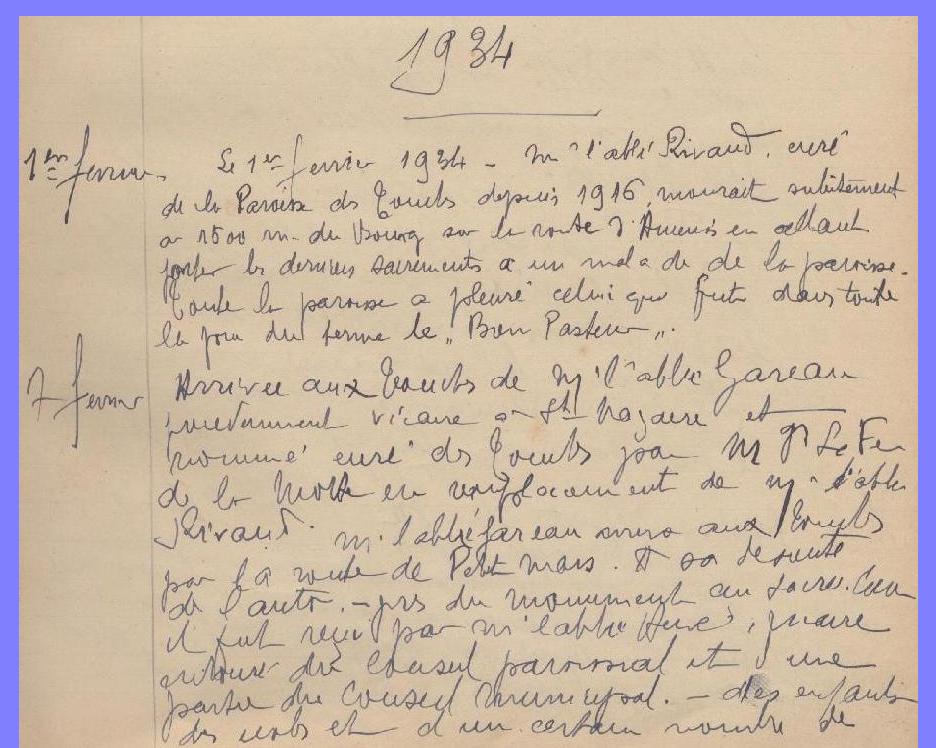 1934
1er fevrier. Le 1er fevrier 1934 - Mr l'abbé Rivaud, curé
de la Paroisse des Touches depuis 1916, mourait subitement
a 1500 m. du Bourg sur la route d'Ancenis en allant
porter les derniers sacrements a un malade de la paroisse.
Toute la paroisse a pleuré celui qui fut dans toute
la force du terme le „ Bon Pasteur „.
7 fevrier Arrivée aux Touches de M. l'abbé Gareau
précédemment vicaire a St Nazaire et
nommé curé des Touches par Mgr Le Fer
de la Motte en remplacement de M. l'abbé
Rivaud. M. l'abbé Gareau arriva aux Touches
par la route de Petit Mars. A sa descente
de l'auto. - près du monument au Sacré-Coeur
il fut reçu par M. l'abbé
entouré du Conseil paroissial et d'une
partie du Conseil Municipal. - des enfants
des écoles et d'un certain nombre de